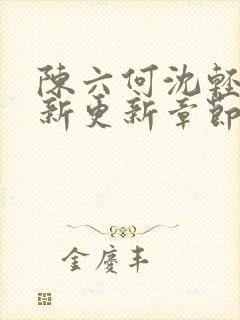 陳六何沈輕
新更新章節
金慶丰